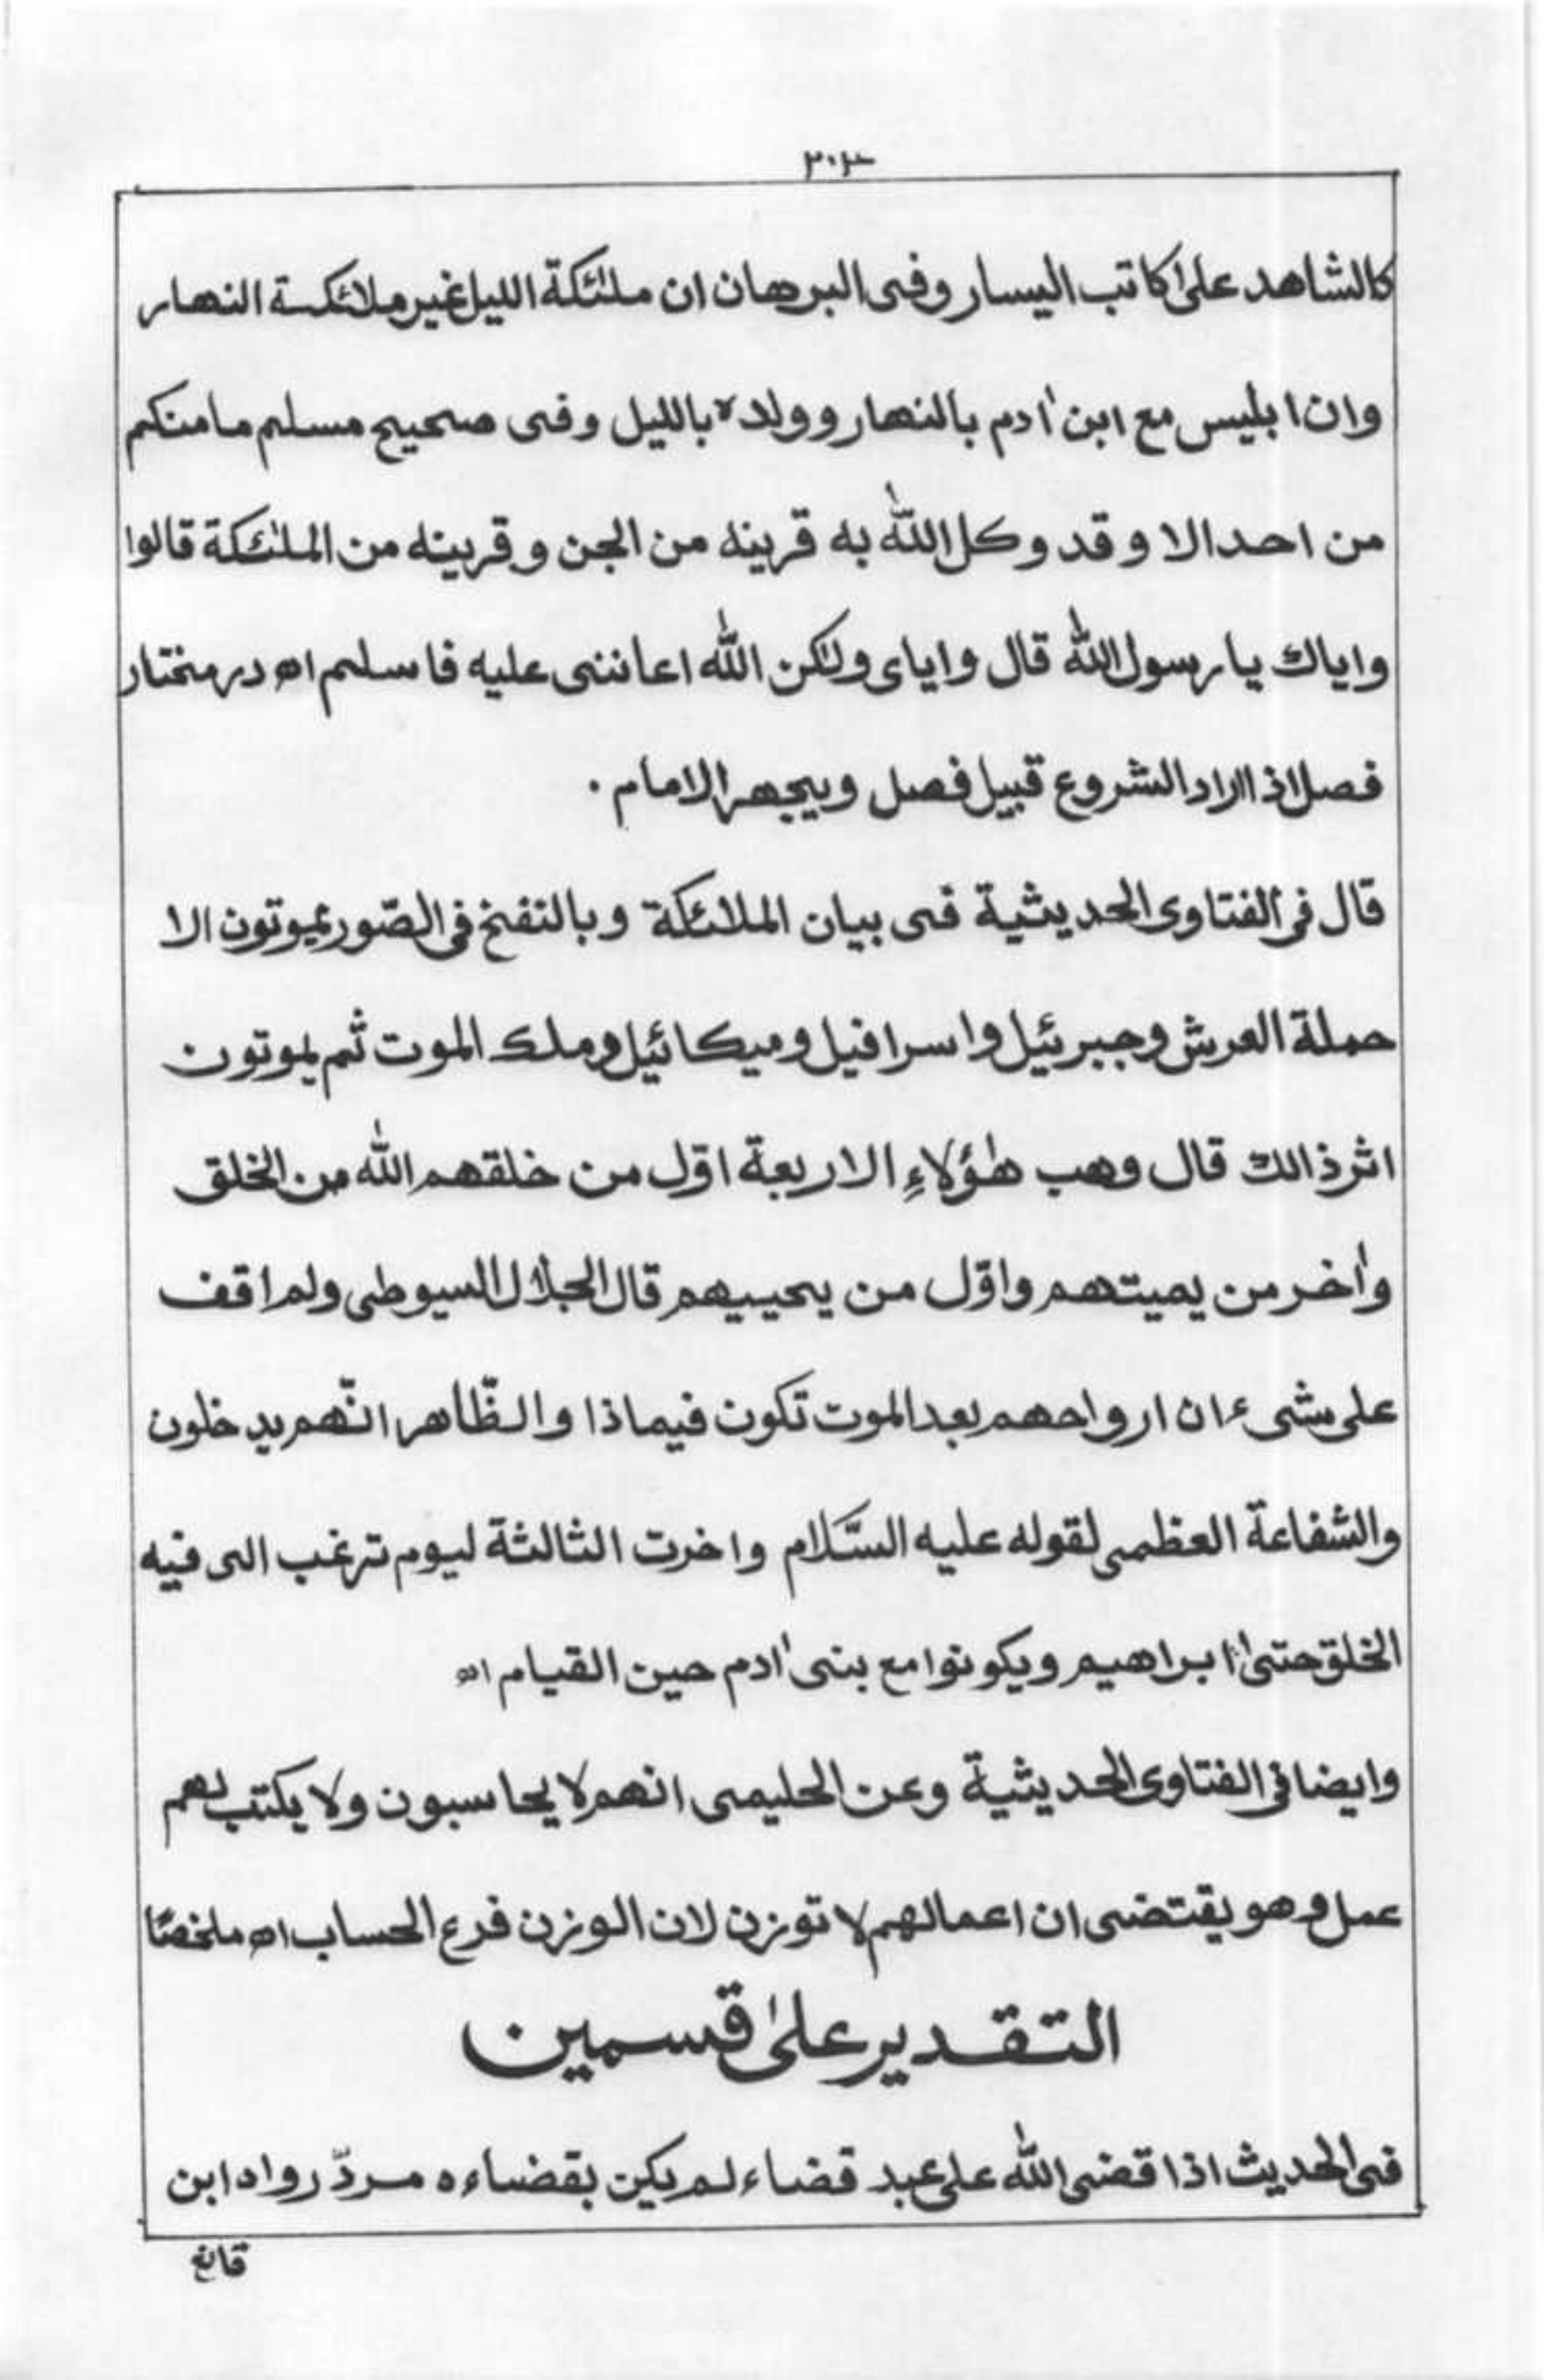 ٣٠٢
كالشاهد علىٰ كاتب اليسار وفى البرهان ان ملٰئكة الليل غير ملائكة النهار
وان ابليس مع ابن اٰدم بالنهار وولده بالليل وفى صحيح مسلم مامنكم
من احد الا وقد وكل اللّٰه به قرينه من الجن وقرينه من الملٰئكة قالوا
واياك يارسول اللّٰه قال واياى ولٰكن اللّٰه اعاننى عليه فاسلم اھ درمختار
فصل اذا اراد الشروع قبيل فصل ويجهر الامام ۰
قال فى الفتاوى الحديثية فى بيان الملائكة وبالنفخ فى الصّور يموتون الا
حملة العرش وجبرئيل واسرافيل وميكائيل وملك الموت ثم يموتون
اثر ذالك قال وهب هٰؤلاءِ الاربعة اوّل من خلقهم اللّٰه من الخلق
واٰخر من يميتهم واوّل من يحييهم قال الجلال السيوطى ولم اقف
على شىء ان ارواحهم بعد الموت تكون فيماذا والظّاهر انّهم يدخلون
والشفاعة العظمى لقوله عليه السّلام واخرت الثالثة ليوم ترغب الى فيه
الخلق حتىٰ ابراهيم ويكونوا مع بنى اٰدم حين القيام اھ
وايضا فى الفتاوى الحديثية وعن الحليمى انهم لا يحاسبون ولا يكتب لهم
عمل وهو يقتضى ان اعمالهم لا توزن لان الوزن فرع الحساب اھ ملخصًا
التقدير علىٰ قسمين
فى الحديث اذا قضى اللّٰه على عبد قضاء لم يكن بقضاءه مردّ رواه ابن
قانع